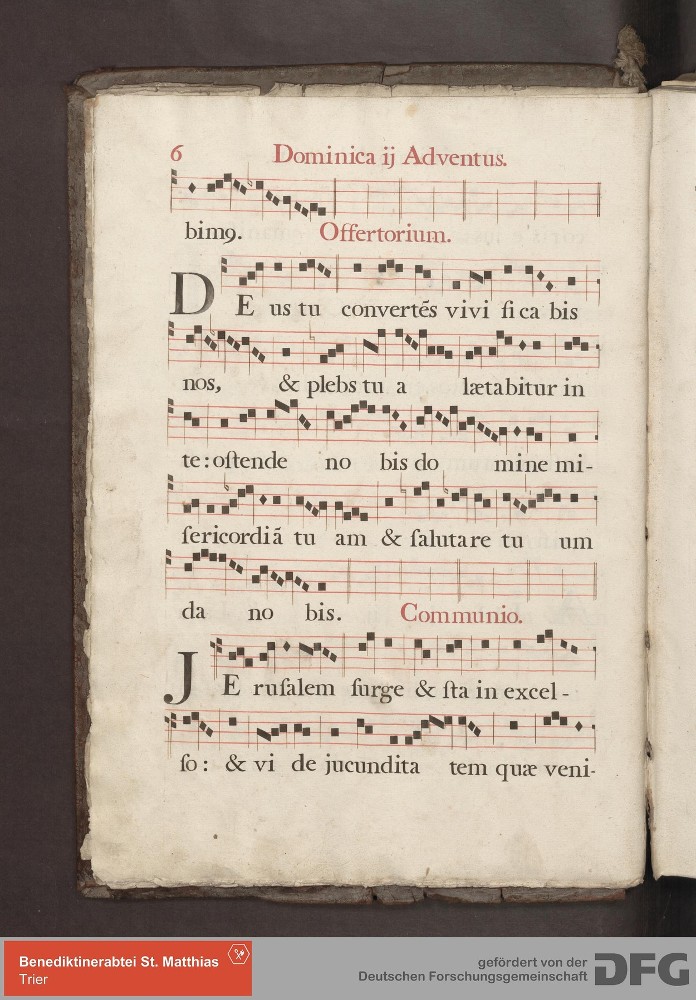 6 Dominica ij Adventus.
bim9. Offertorium.
DE us tu convertẽs vivi ſi ca bis
nos, & plebs tu a lætabitur in
te: oſtende no bis do mine mi-
ſericordiã tu am & ſalutare tu um
da no bis. Communio.
JE ruſalem ſurge & ſta in excel-
ſo: & vi de jucundita tem quæ veni-
Benediktinerabtei St. Matthias
Trier
gefördert von der
Deutschen Forschungsgemeinschaft DFG